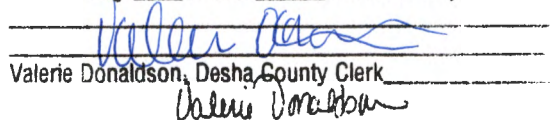 Valerie Donaldson, Desha County Clerk
Valerie Donaldson